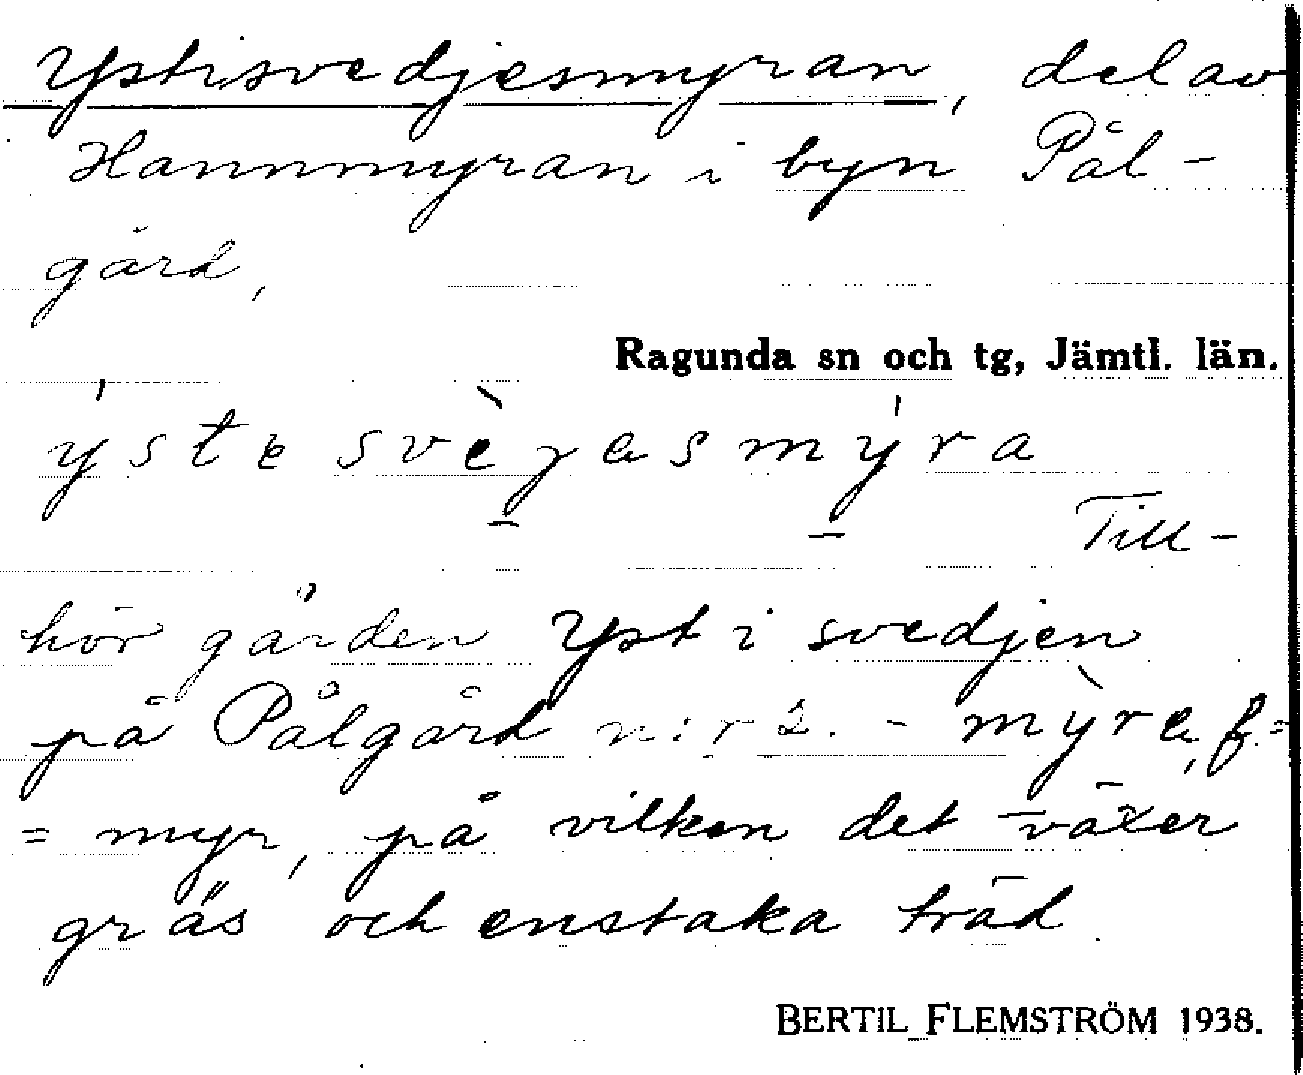 Ystisvedjesmyran, del av
Hannmyran i byn Pål-
gård,
Ragunda sn och tg, Jämtl. län.
ýste svèjasmýra
Till-
hör gården Yst i svedjen
på Pålgård n:r 2. - mỳra, f. =
= myr, på vilken det växer
gräs och enstaka träd
BERTIL FLEMSTRÖM 1938.